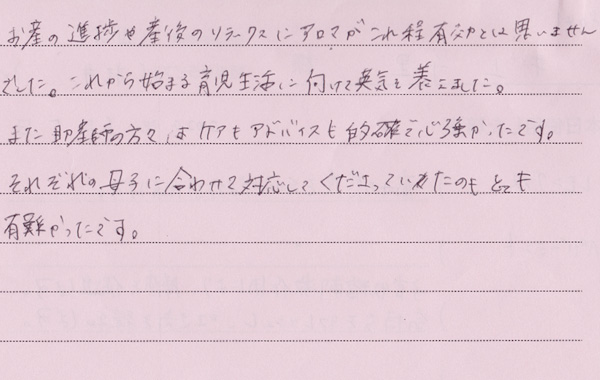 お産の進捗や産後のリラックスにアロマがこれ程有効とは思いません
でした。これから始まる育児生活に向けて英気を養えました。
また助産師の方々はケアもアドバイスも的確で心強かったです。
それぞれの母子に合わせて対応してくださっていたのもとても
有難かったです。